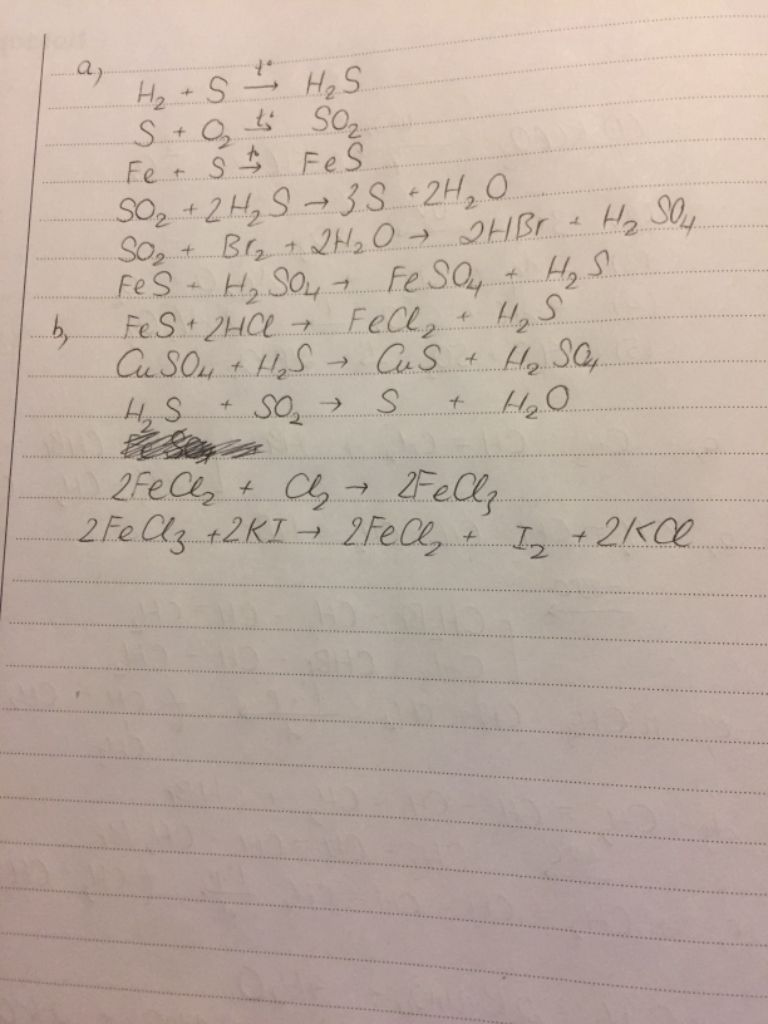 a, H₂ + S →(t°) H₂S
S + O₂ →(t°) SO₂
Fe + S →(t°) FeS
SO₂ + 2H₂S → 3S + 2H₂O
SO₂ + Br₂ + 2H₂O → 2HBr + H₂SO₄
FeS + H₂SO₄ → FeSO₄ + H₂S
b, FeS + 2HCl → FeCl₂ + H₂S
CuSO₄ + H₂S → CuS + H₂SO₄
H₂S + SO₂ → S + H₂O
2FeCl₂ + Cl₂ → 2FeCl₃
2FeCl₃ + 2KI → 2FeCl₂ + I₂ + 2KCl